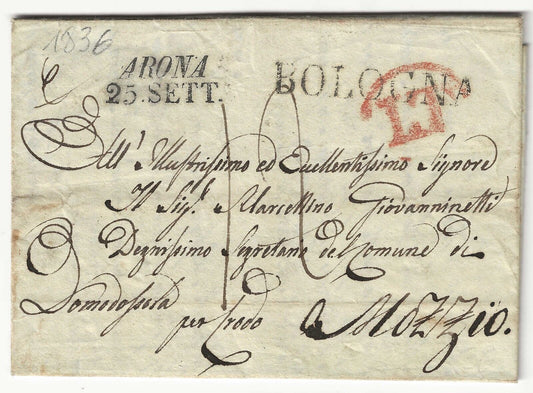 1836
ARONA
25.SETT.
BOLOGNA
LT
All' Illustrissimo ed Eccellentissimo Signore
Il Sig.r Marcellino Giovanninetti
Degnissimo Segretario del Comune di
Domodossola
per Crodo
a Mozzio.